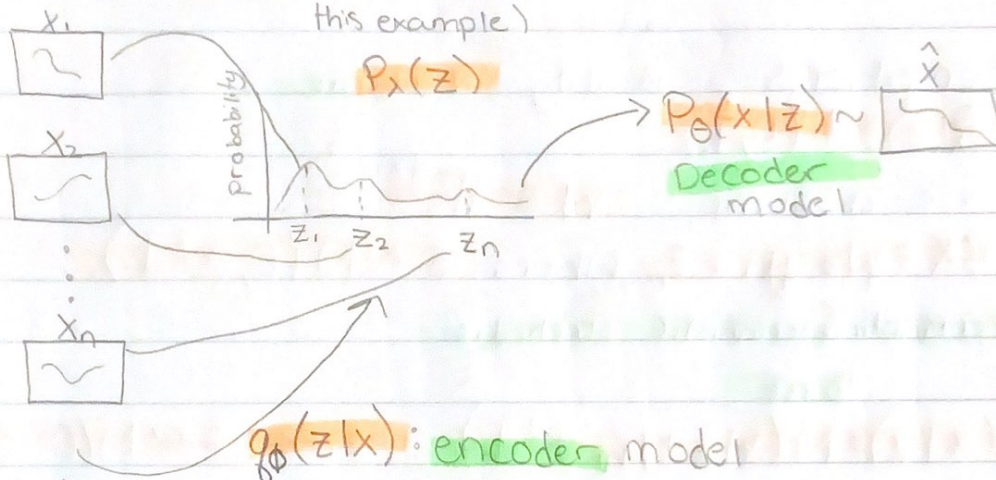 this example)
X₁
Pλ(z)
probability
X̂
Pθ(x|z) ~
X₂
Decoder
model
z₁ z₂ zₙ
Xₙ
qϕ(z|x): encoder model